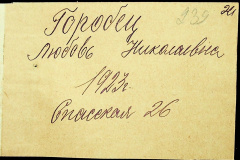 239
31
Горобец
Любовь Николаевна
1923г.
Спасская 26